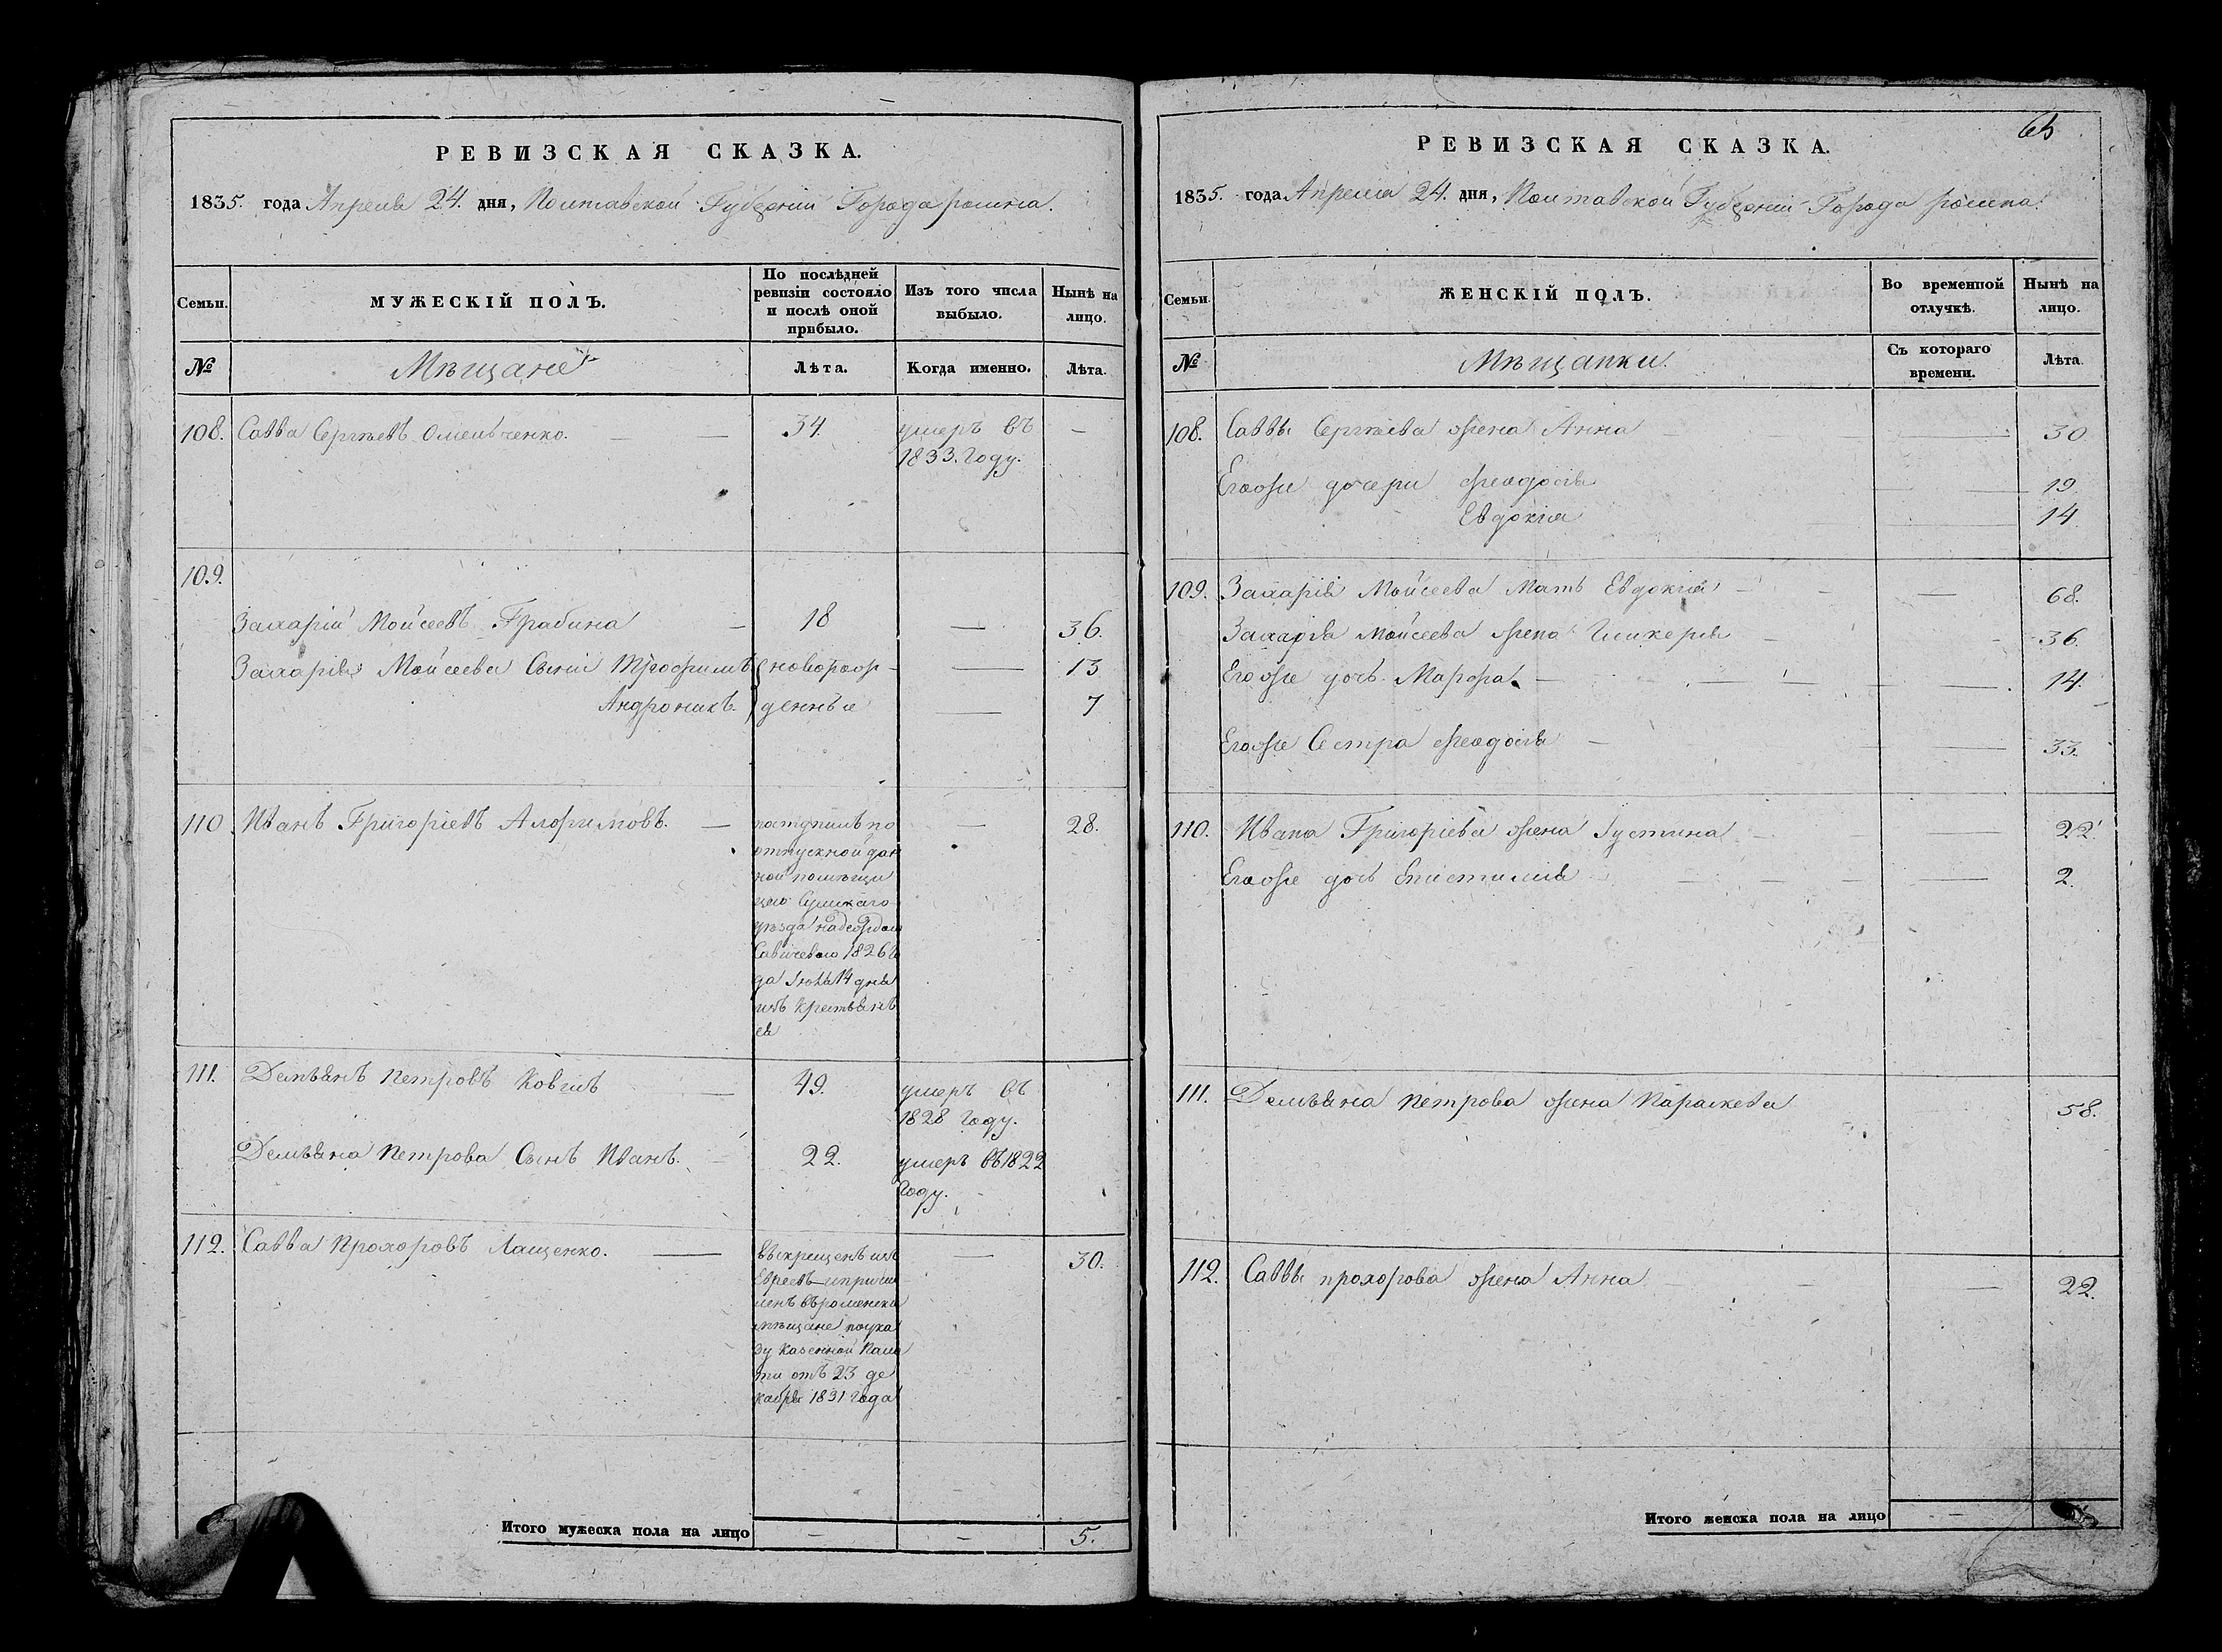 РЕВИЗСКАЯ СКАЗКА.
1835. года Апреля 24. дня, Полтавской Губернии Города ромна.
Семьи.
МУЖЕСКІЙ ПОЛЪ.
По послѣдней
ревизіи состояло
и послѣ оной
прибыло.
Изъ того числа
выбыло.
Нынѣ на
лицо.
№
Мѣщане
Лѣта.
Когда именно.
Лѣта.
108. Савва Сергѣевъ Омельченко. — — 34. умеръ въ —
1833. Году.
109.
Захарій Мойсеевъ Грабина — 18 — 36.
Захарія Мойсеева Сыны Трофимъ новорож- — 13
Андроникъ. денные — 7
110 Иванъ Григоріевъ — — 28.
поступилъ по
отпускной дан
ной помѣщи
цею Сумскаго
уѣзда надеждою
Савичевою 1826 го
да 14 дня
изъ крестьянъ
ея
111. Демьянъ Петровъ Ковгиъ — 49. умеръ въ
1828 Году.
Демьяна Петрова Сынъ Иванъ. — 22. умеръ въ 1822
Году.
112. Савва Прохоровъ Лащенко. — — 30.
выкрещенъ изъ
Евреевъ и причи
ленъ въ роменски
мѣщане по ука
зу Казенной Пала
ты отъ 23 де
кабря 1831 года
Итого мужеска пола на лицо — — 5.
65
РЕВИЗСКАЯ СКАЗКА.
1835. года Апреля 24. дня, Полтавской Губернии Города ромна.
Семьи.
ЖЕНСКІЙ ПОЛЪ.
Во временной
отлучкѣ.
Нынѣ на
лицо.
№
Мѣщанки.
Съ котораго
времени.
Лѣта.
108. Саввы Сергѣева жена Анна — 30.
Егоже дочери Феодосія — 19
Евдокія — 14
109. Захарія Мойсеева Мать Евдокія — — 68.
Захарія Мойсеева жена Гликерія — 36.
Егоже дочь Марфа. — — 14.
Егоже Сестра Феодосія — — 33.
110. Ивана Григоріева жена Іустина — 22.
Егоже дочь Епистимія — — 2.
111. Демьяна Петрова жена Параскева 58.
112. Саввы прохорова жена Анна — — 22.
Итого женска пола на лицо —